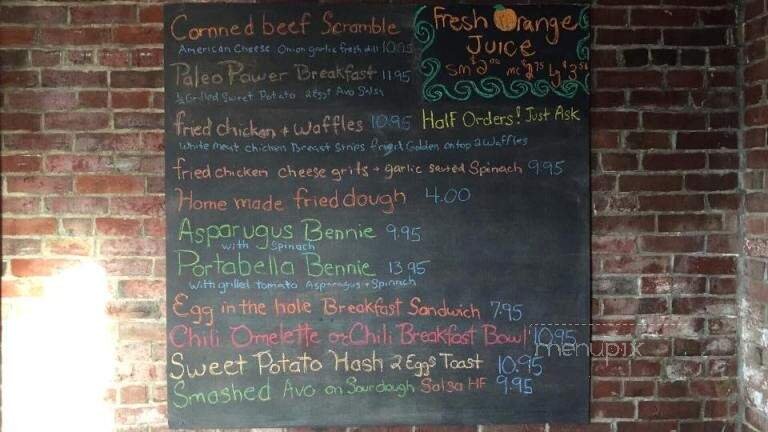 Cornned beef Scramble
American Cheese Onion garlic fresh dill 10.95
Paleo Power Breakfast 11.95
½ Grilled Sweet Potato 2 Eggs Avo Salsa
Fresh Orange
Juice
sm $2.00 me 2.75 Lg $3.50
Half Orders! Just Ask
fried chicken + Waffles 10.95
White meat chicken Breast Strips fryed Golden on top 2 Waffles
fried chicken cheese grits + garlic sauted Spinach 9.95
Home made fried dough 4.00
Asparugus Bennie 9.95
with Spinach
Portabella Bennie 13.95
With grilled tomato Asparagus + Spinach
Egg in the hole Breakfast Sandwich 7.95
Chili Omelette or Chili Breakfast Bowl 10.95
Sweet Potato Hash 2 Eggs Toast 10.95
Smashed Avo on Sourdough Salsa HF 9.95
menupix